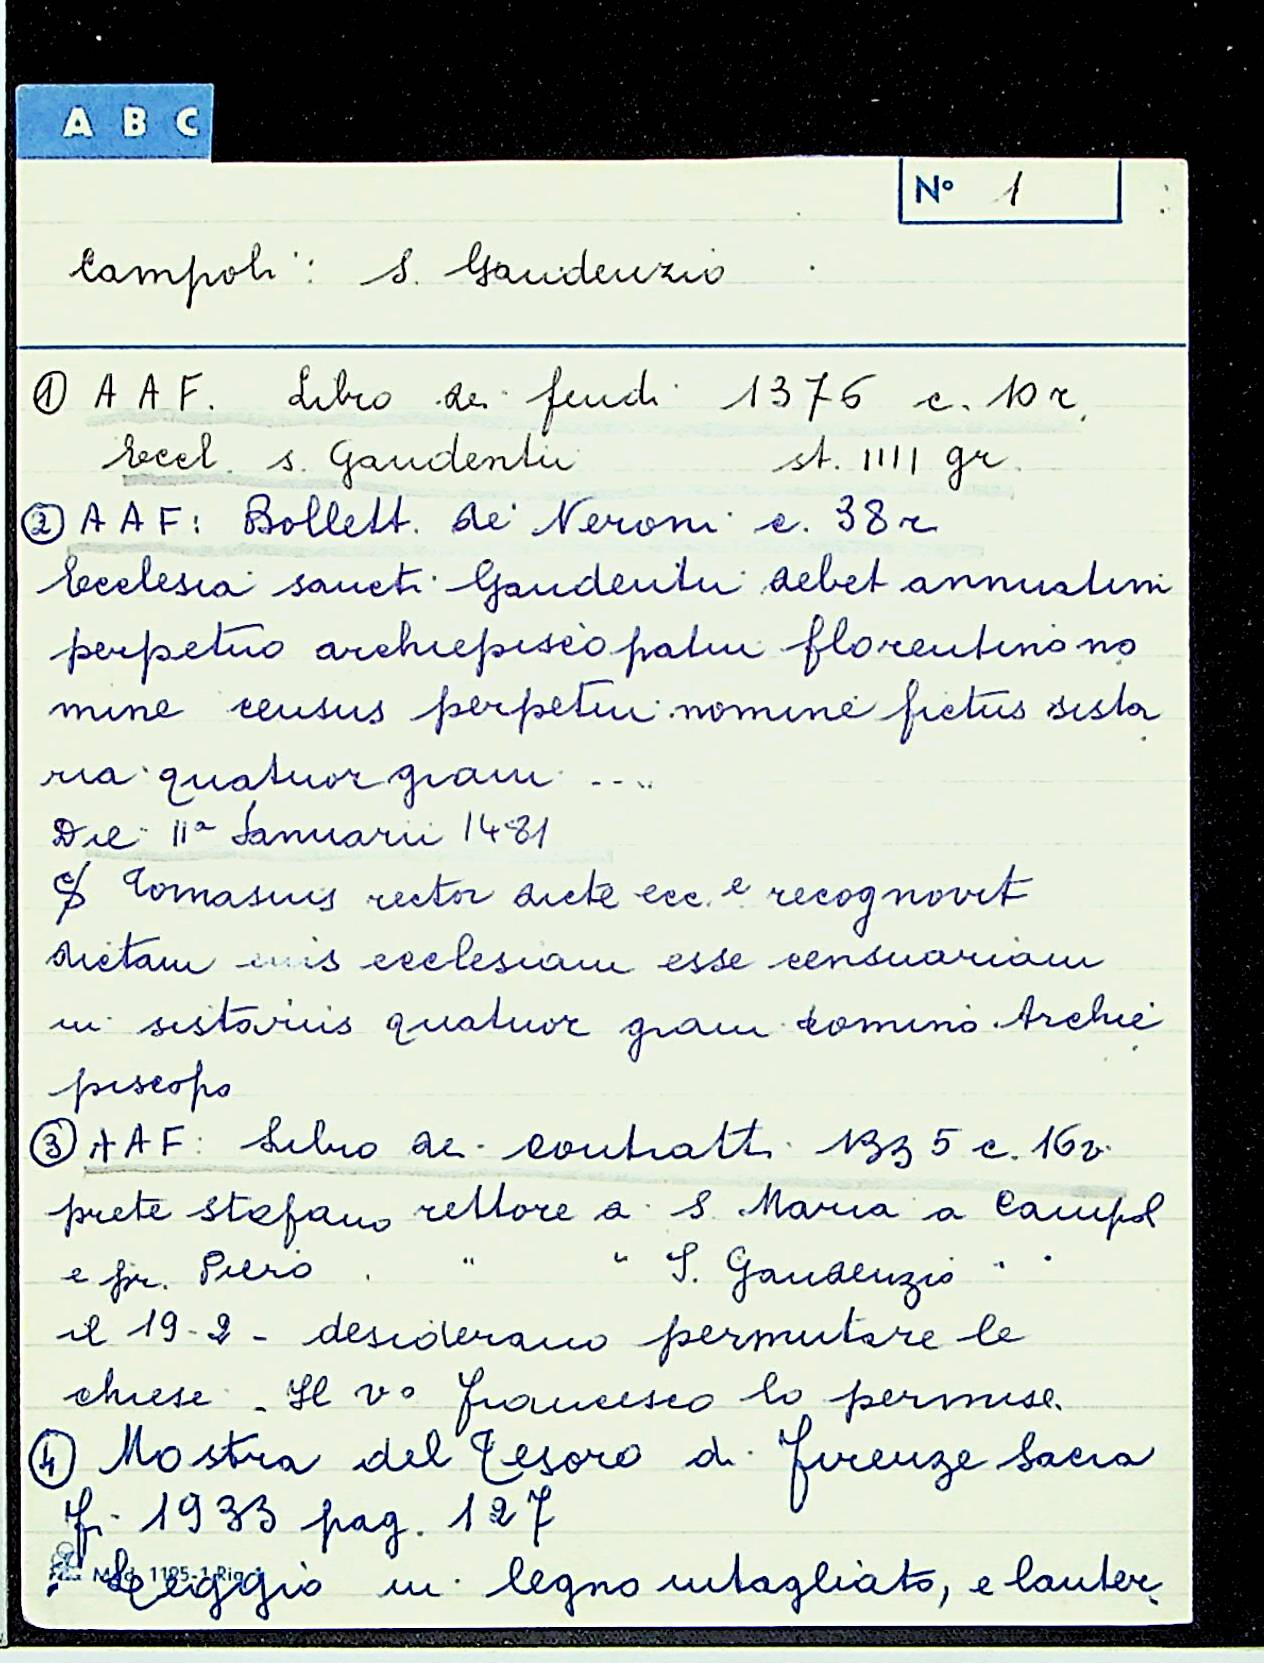 A B C
N° 1
Campoli: S. Gaudenzio
① AAF. Libro dei feudi 1376 c. 10 r.
Eccl. s. Gaudentii st. IIII gr.
② AAF: Bollett. dei Neroni c. 38 r
Ecclesia sancti Gaudentii debet annuatim
perpetuo archiepiscopatui florentino no
mine census perpetui nomine fictus sista
ria quatuor grani ....
Die 11ª Januarii 1481
Tomasius rector dicte ecc.e recognovit
dictam ecclesiam esse censuariam
in sistariis quatuor grani domino Archie
piscopo
③ AAF: Libro dei contratti 1335 c. 16 v.
prete Stefano rettore a S. Maria a Campol
e pr. Piero " " S. Gaudenzio " "
il 19-2- desiderano permutare le
chiese. Il v° Francesco lo permise.
④ Mostra del Tesoro di Firenze Sacra
Fi. 1933 pag. 127
Mod. 1195-1 Rig.
: Leggio in legno intagliato, e lanter